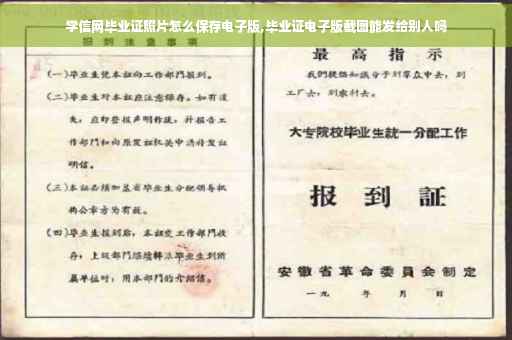 学信网毕业证照片怎么保存电子版,毕业证电子版截图能发给别人吗
报到注意事项
(一)毕业生凭本证向工作部门报到。
(二)毕业生对本证应注意保存。如有遗
失,应即登报声明作废,并报告工
作部门和向原发证机关申请补发证
明信。
(三)本证必须加盖省毕业生分配领导机
构公章方为有效。
(四)毕业生报到后,本证交工作部门收
存,上级部门
毕业生到所
属单位时,用本部门的介绍信。
最高指示
我们提倡知识分子到群众中去,到
工厂去,到农村去。
大专院校毕业生統一分配工作
报到証
安徽省革命委員会制定
一九 年 月 日